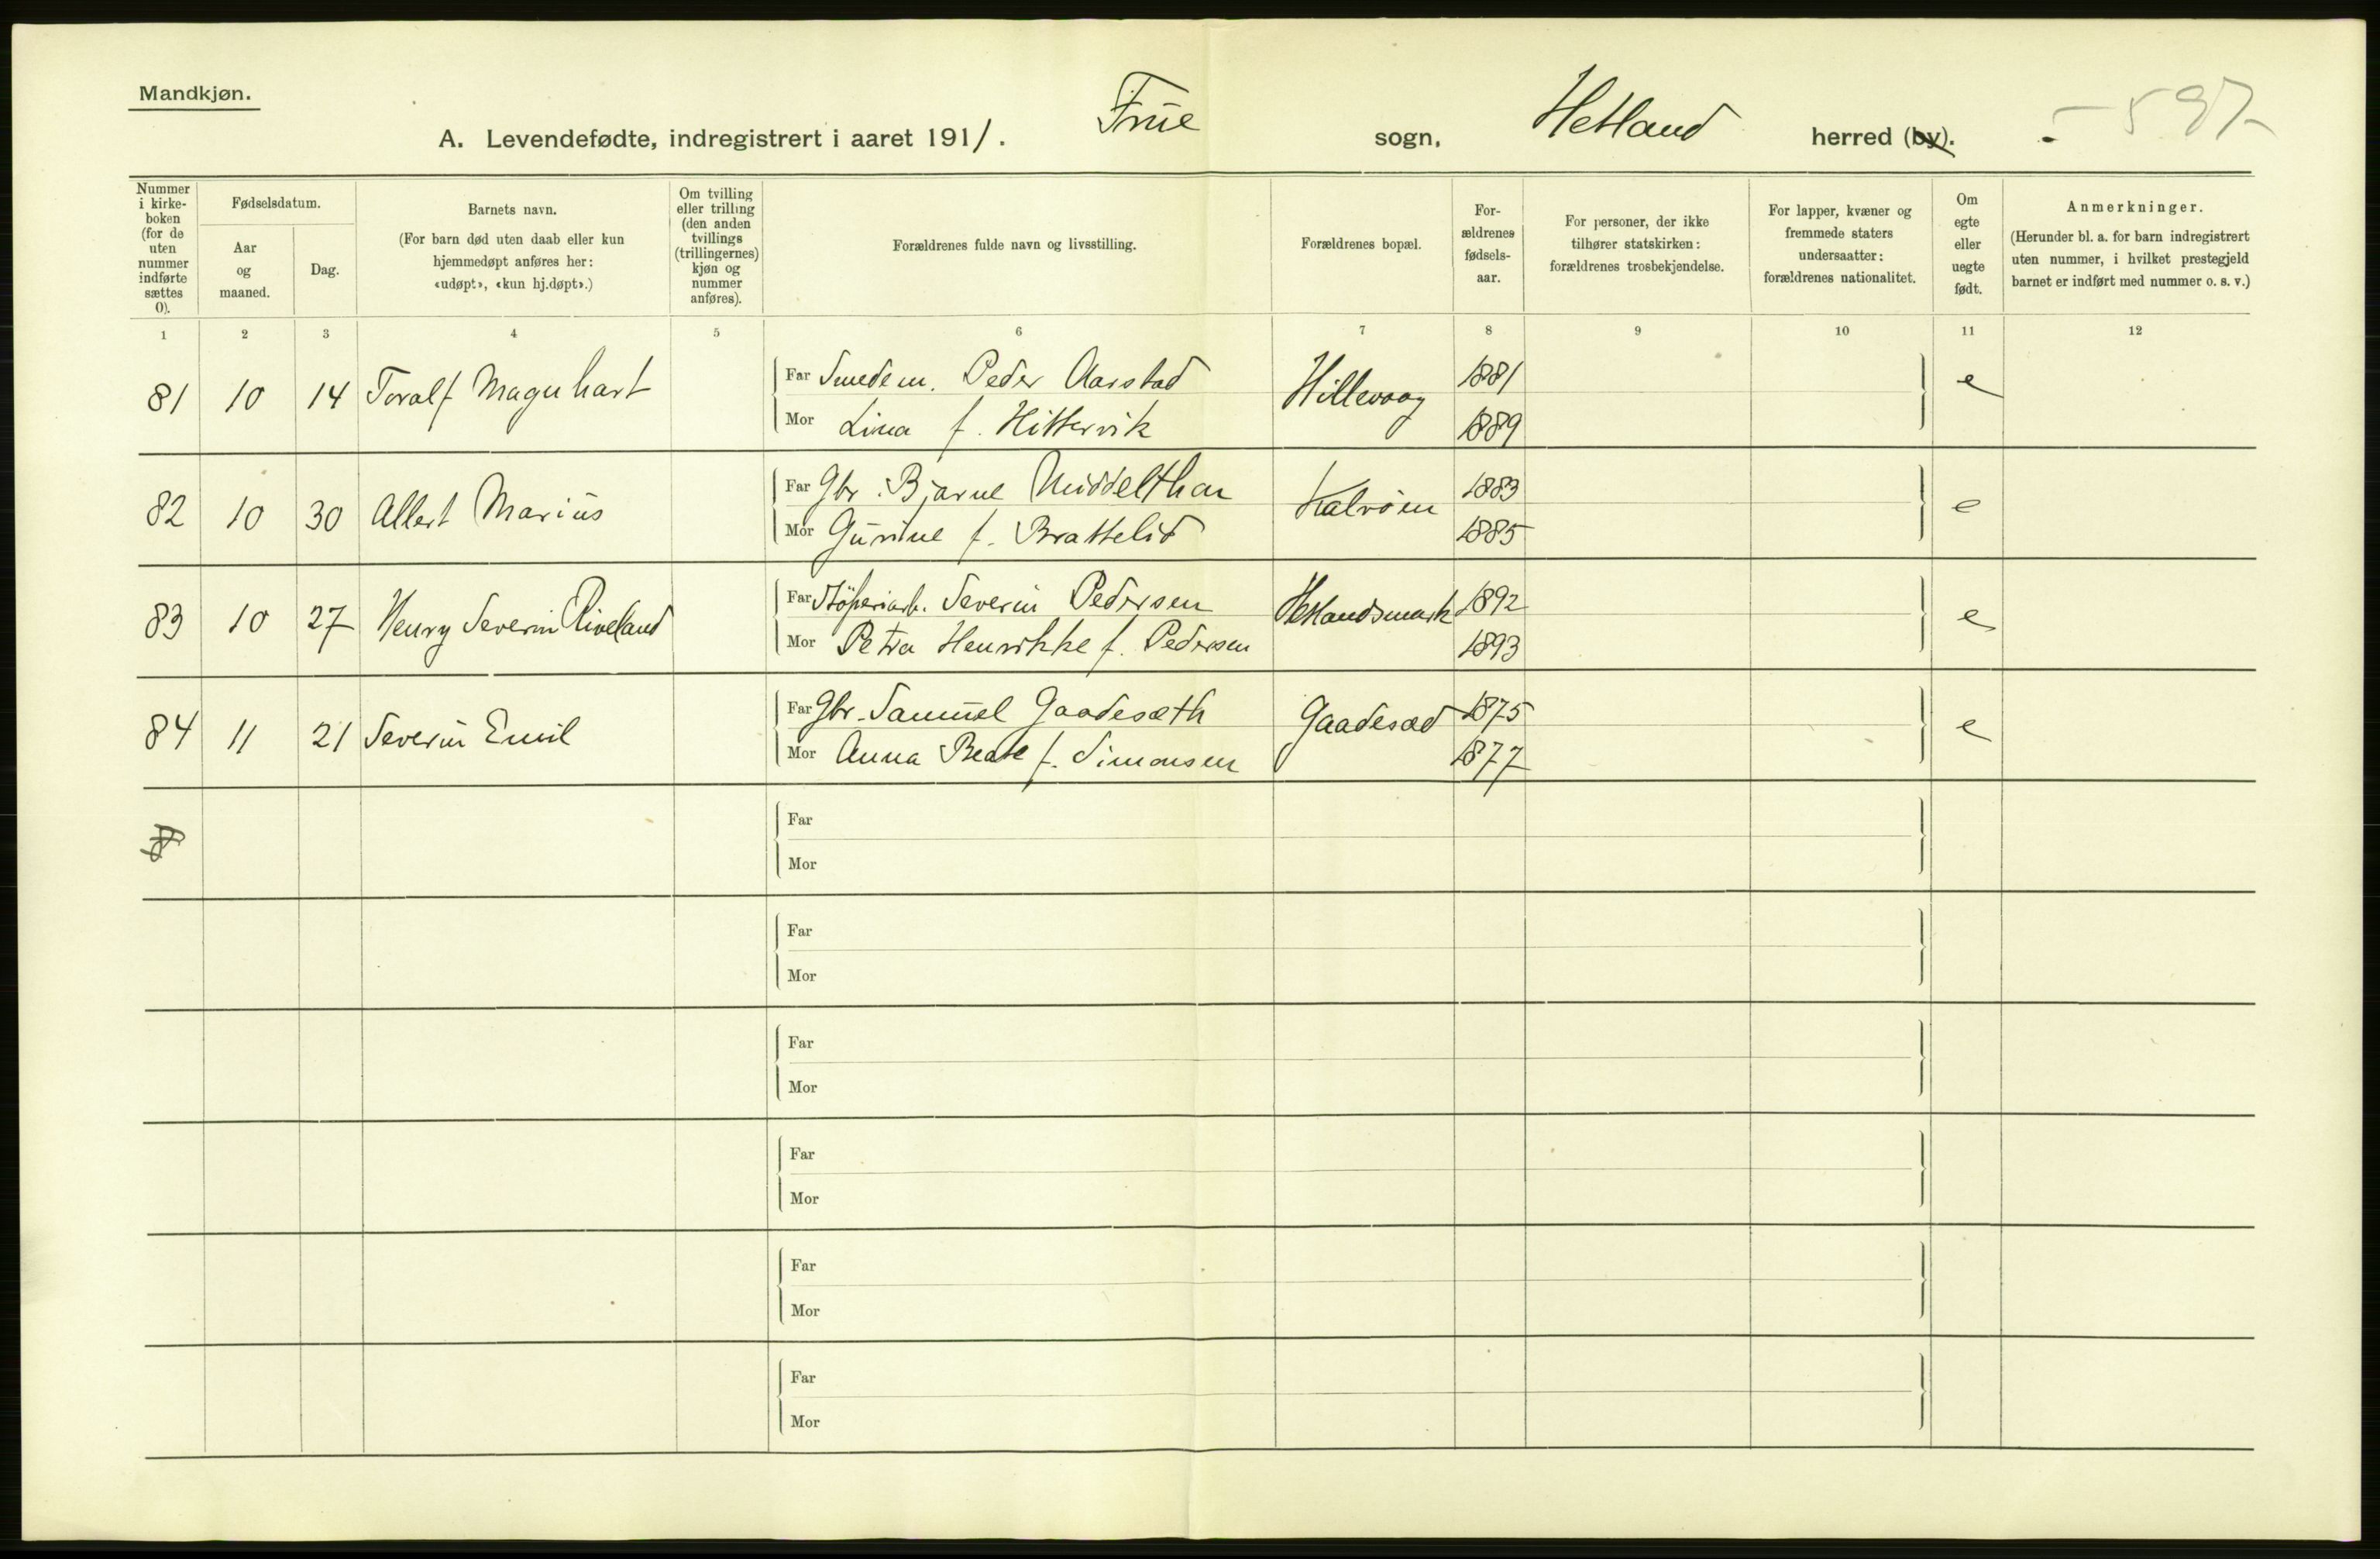 Mandkjøn.
A. Levendefødte, indregistrert i aaret 1911. Frue sogn, Hetland herred (by). - 597
Nummer i kirke-boken (for de uten nummer indførte sættes 0).
Fødselsdatum.
Aar og maaned.
Dag.
Barnets navn.
(For barn død uten daab eller kun hjemmedøpt anføres her: «udøpt», «kun hj.døpt».)
Om tvilling eller trilling (den anden tvillings (trillingernes) kjøn og nummer anføres).
Forældrenes fulde navn og livsstilling.
Forældrenes bopæl.
For-ældrenes fødsels-aar.
For personer, der ikke tilhører statskirken: forældrenes trosbekjendelse.
For lapper, kvæner og fremmede staters undersaatter: forældrenes nationalitet.
Om egte eller uegte født.
Anmerkninger.
(Herunder bl. a. for barn indregistrert uten nummer, i hvilket prestegjeld barnet er indført med nummer o. s. v.)
1 2 3 4 5 6 7 8 9 10 11 12
81 10 14 Toralf Magnhart Far Smedem. Peder Aarstad Hillevaag 1881 e
Mor Lina f. Hittervik 1889
82 10 30 Allert Marius Far Gbr. Bjarne Middelthon 1883 e
Mor Gurine f. Brattelid 1885
83 10 27 Henry Severin Riveland Far Støperiarb. Severin Pedersen Hetlandsmark 1892 e
Mor Petra Henrikke f. Pedersen 1893
84 11 21 Severin Emil Far Gbr. Samuel Gaadesæth Gaadesæd 1875 e
Mor Anna Beate f. Simonsen 1877
Far
Mor
Far
Mor
Far
Mor
Far
Mor
Far
Mor
Far
Mor